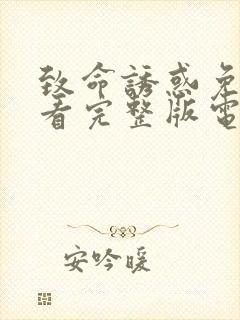 致命誘惑免
看完整版電
安吟暖